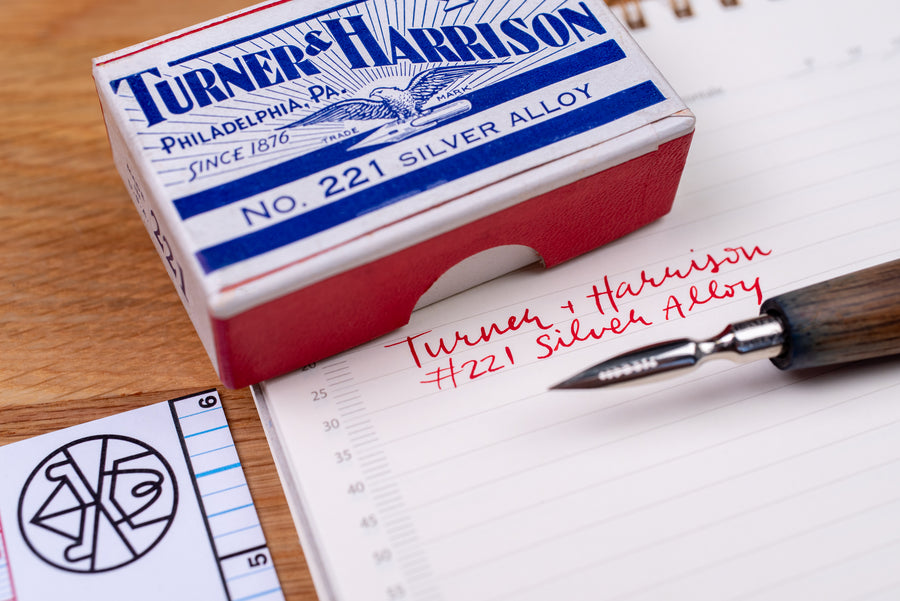 TURNER & HARRISON
PHILADELPHIA, PA.
TRADE MARK
SINCE 1876
NO. 221 SILVER ALLOY
221
Turner + Harrison
#221 Silver Alloy
25
30
35
40
45
50
55
6
5